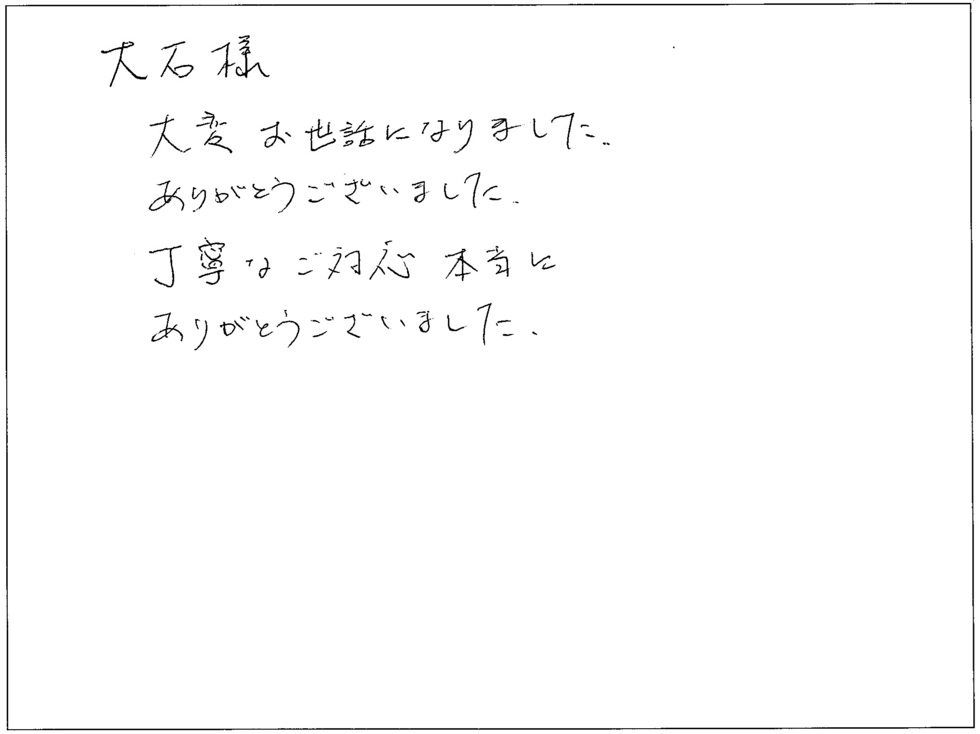 大石様
大変 お世話になりました.
ありがとうございました.
丁寧なご対応 本当に
ありがとうございました.